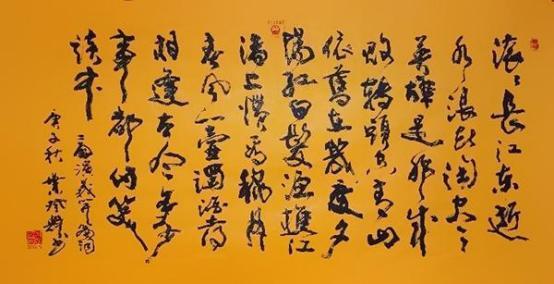 滚々长江东逝
水浪花淘尽
英雄是非成
败转頭空青山
依舊在几度夕
陽红白髮渔樵江
渚上惯看秋月
春风一壶浊酒喜
相逢古今多少
事都付笑
谈中
三国演义开篇词
庚子秋 书